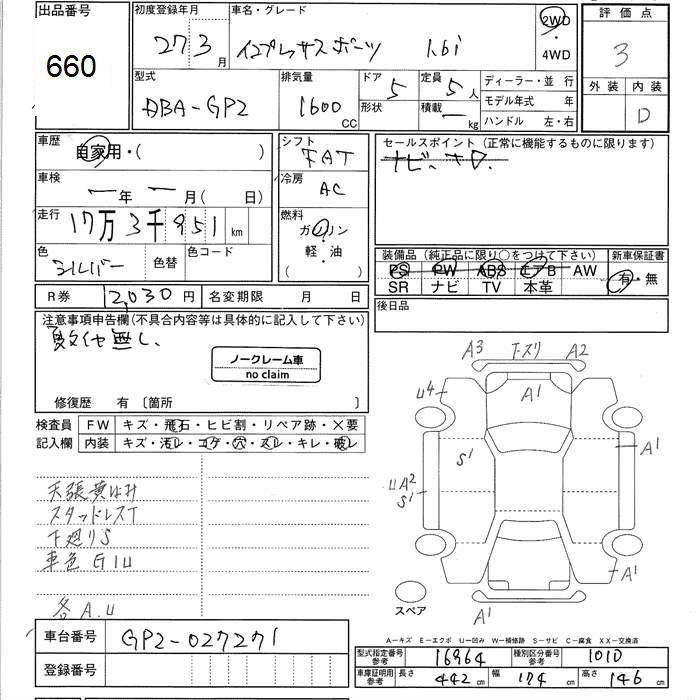 出品番号 660
初度登録年月 27 3月
車名・グレード インプレッサスポーツ 1.6i
2WD・4WD
評価点 3
外装 内装 D
型式 DBA-GP2
排気量 1600 CC
ドア 5 形状
定員 5人 積載 ー kg
ディーラー・並 行
モデル年式 年
ハンドル 左・右
車歴 自家用・( )
シフト FAT
セールスポイント (正常に機能するものに限ります)
ナビ、
車検 ー年 ー月( 日)
冷房 AC
走行 17万3千951 km
燃料 ガソリン 軽・油
色 シルバー 色替 色コード
装備品 (純正品に限り○をつけて下さい) 新車保証書
PS PW ABS エアB AW 有・無
SR ナビ TV 本革
R券 12,030円 名変期限 月 日
後日品
注意事項申告欄(不具合内容等は具体的に記入して下さい)
無し、
ノークレーム車
no claim
修復歴 有 〔箇所 〕
検査員 FW キズ・飛石・ヒビ割・リペア跡・×要
記入欄 内装 キズ・汚レ・コゲ・穴・スレ・キレ・破レ
天張黄ばみ
スタッドレスT
下廻りS
車色 G1U
各 A.U
A3 T-スリ A2
U4 A1
A1
S1
UA2
S1
A1
スペア
A1
A-キズ E-エクボ U-凹み W-補修跡 S-サビ C-腐食 XX-交換済
車台番号 GP2-027271
登録番号
型式指定番号 参考 16964 種別区分番号 参考 1010
車庫証明用 参考 長さ 442 cm 幅 174 cm 高さ 146 cm